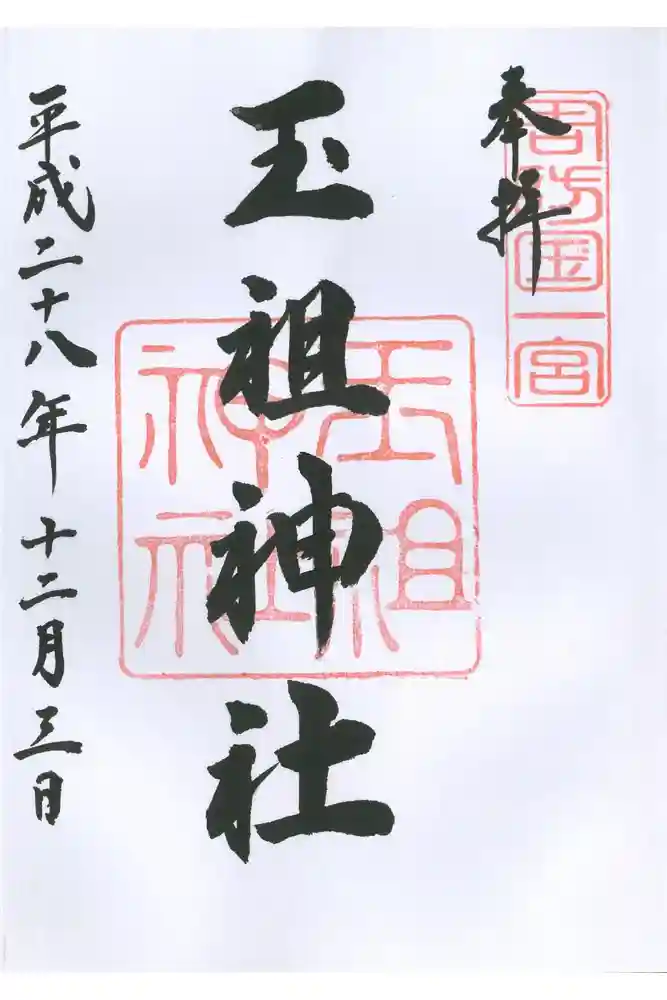 奉拝
周防国一宮
玉祖神社
玉祖
神社
平成二十八年十二月三日